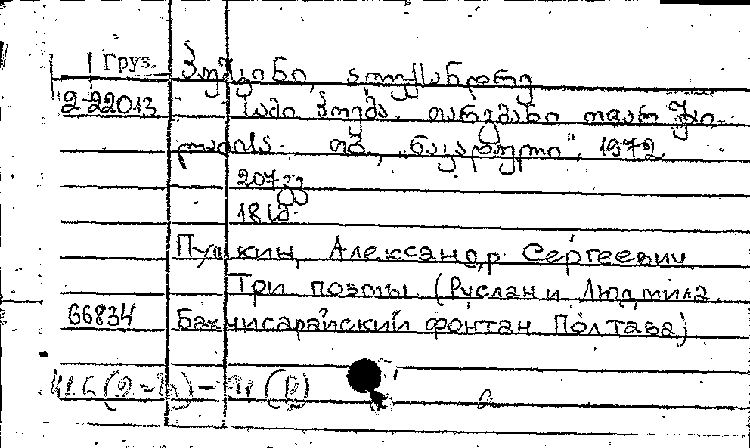 Груз. პუშკინი, ალექსანდრე
2-22013 სამი პოემა. თარგმანი ოთარ შა-
ლამის. თბ., „ნაკადული“, 1972.
207 გვ
18 სმ.
Пушкин, Александр Сергеевич
Три поэмы (Руслан и Людмила
66834 Бахчисарайский фонтан. Полтава)